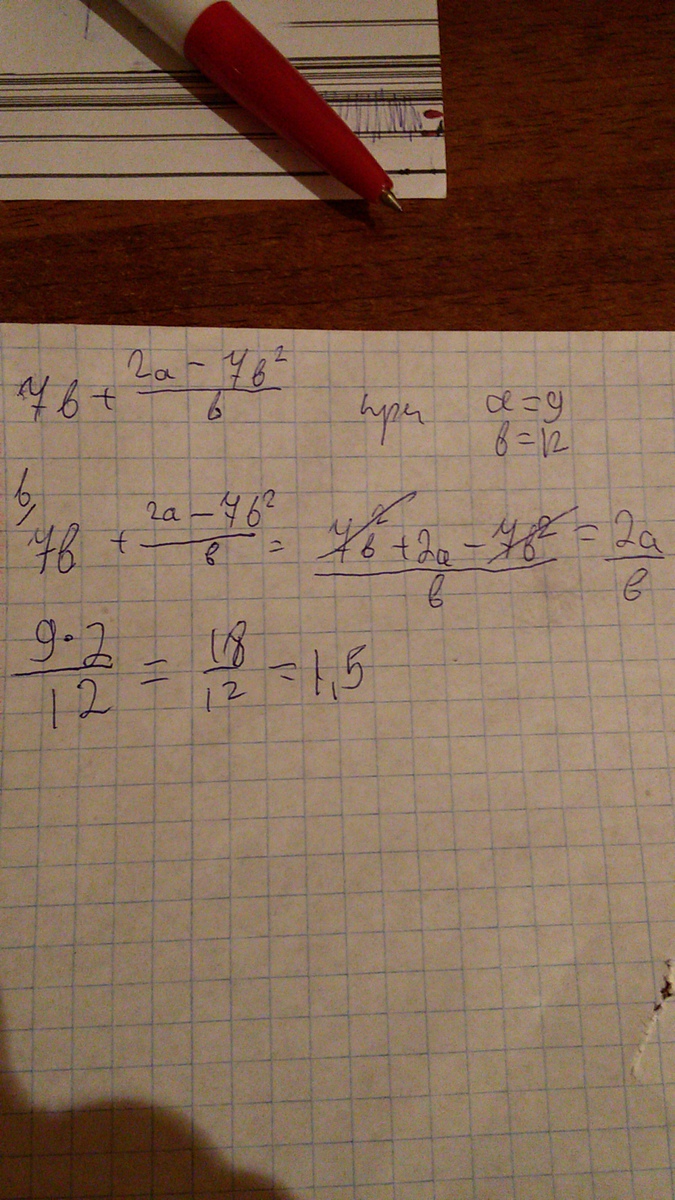 7в + (2а - 7в²)/в при а=9
в=12
в/ 7в + (2а - 7в²)/в = (7в² + 2а - 7в²)/в = 2а/в
(9·2)/12 = 18/12 = 1,5